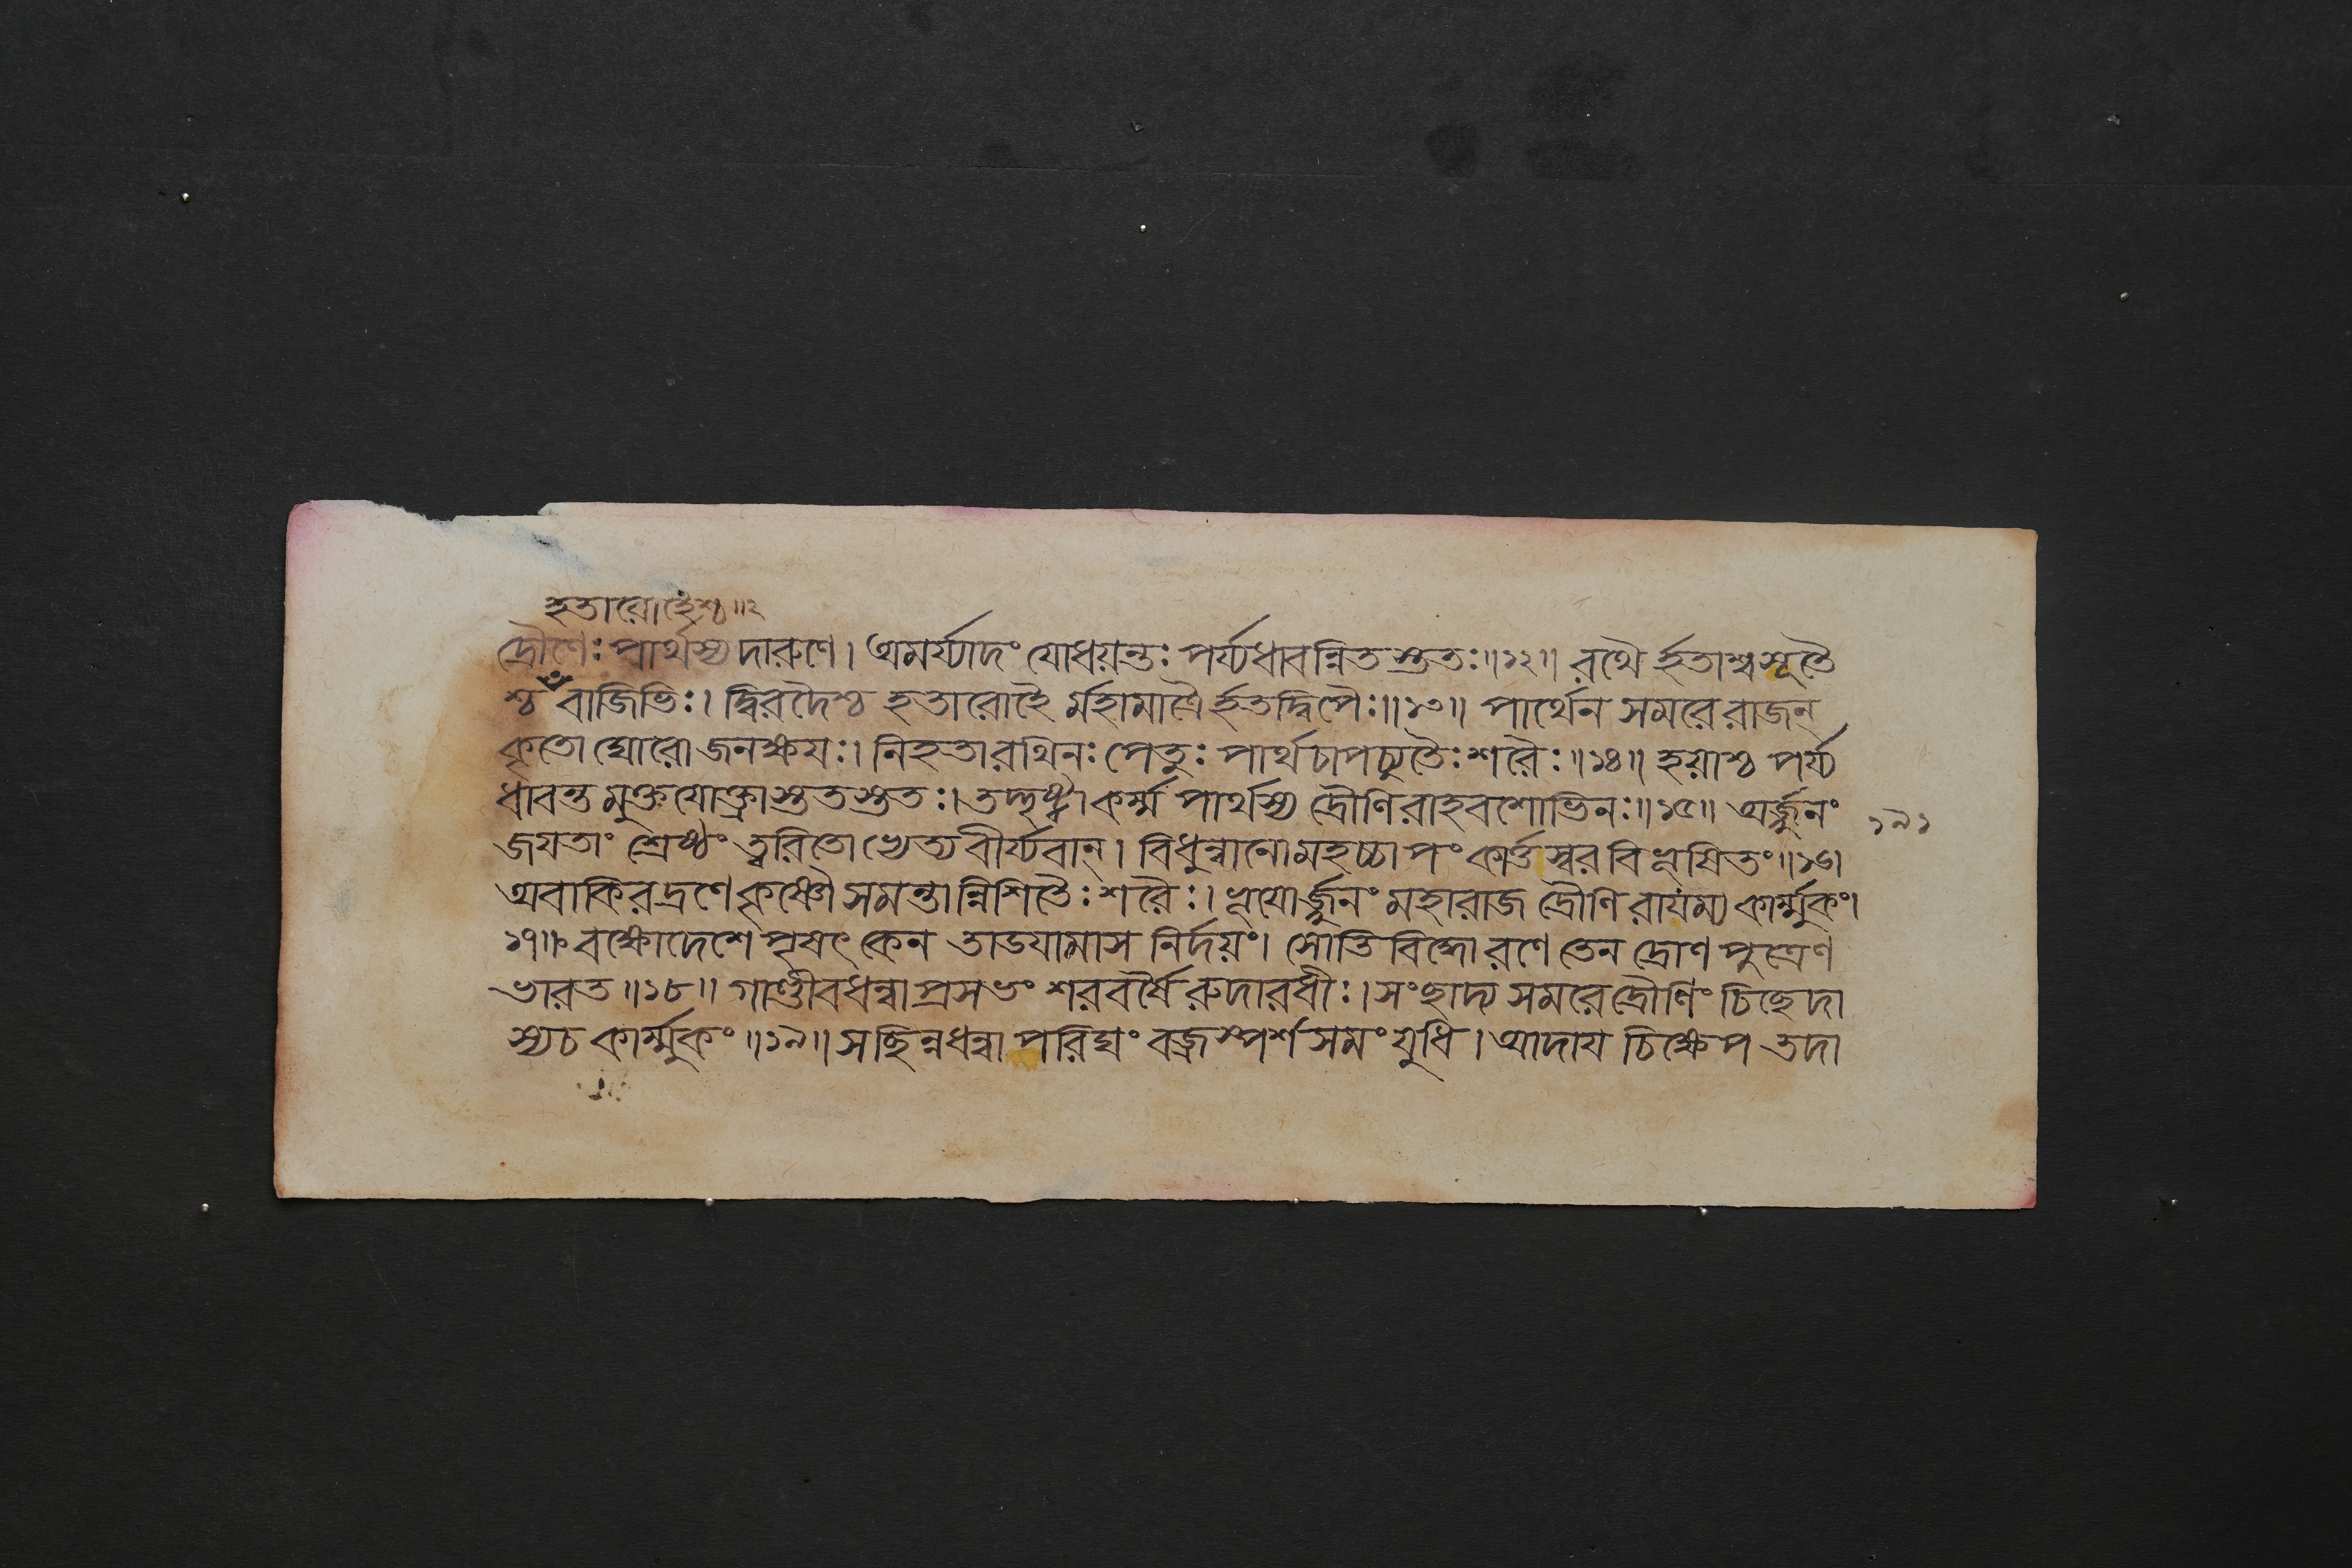 হতারোহৈশ্চ॥২
দ্রৌণেঃ পার্থস্য দারুণে। অমর্য্যাদং যোধয়ন্তঃ পর্য্যধাবন্নিতস্ততঃ॥১২॥ রথৈর্হতাশ্বসূতৈ
শ্চ বাজিভিঃ। দ্বিরদৈশ্চ হতারোহৈর্মহামাত্রৈর্হতদ্বিপৈঃ॥১৩॥ পার্থেন সমরে রাজন্
কৃতো ঘোরো জনক্ষযঃ। নিহতা রথিনঃ পেতুঃ পার্থচাপচ্যুতৈঃ শরৈঃ॥১৪॥ হয়াশ্চ পর্য্য
ধাবন্ত মুক্তযোক্ত্রাস্ততস্ততঃ। তদ্দৃষ্ট্বা কর্ম্ম পার্থস্য দ্রৌণিরাহবশোভিনঃ॥১৫॥ অর্জ্জুনং
জযতাং শ্রেষ্ঠং ত্বরিতো ভ্যেত্য বীর্য্যবান্। বিধুন্বানো মহচ্চাপং কার্ত্তস্বরবিভূষিতং॥১৬।
অবাকিরদ্রণে কৃষ্ণৌ সমন্তান্নিশিতৈঃ শরৈঃ। ভূযোর্জ্জুনং মহারাজ দ্রৌণিরাযম্য কার্ম্মুকং।
১৭॥ বক্ষোদেশে পৃষৎকেন তাডযামাস নির্দয়ং। সোতিবিদ্ধো রণে তেন দ্রোণপুত্রেণ
ভারত॥১৮॥ গাণ্ডীবধন্বা প্রসভং শরবর্ষৈরুদারধীঃ। সংছাদ্য সমরে দ্রৌণিং চিছেদা
স্য চ কার্ম্মুকং॥১৯॥ সছিন্নধন্বা পরিঘং বজ্রস্পর্শসমং যুধি। আদায চিক্ষেপ তদা
১৯১